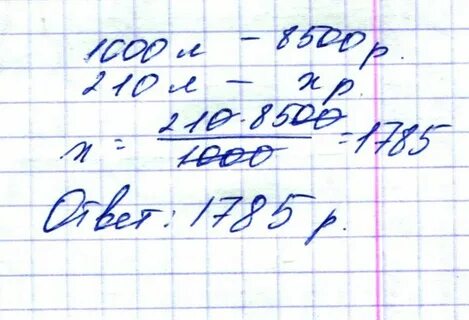 1000 л – 8500 р.
210 л – х р.
х = 210·8500/1000 = 1785
Ответ: 1785 р.